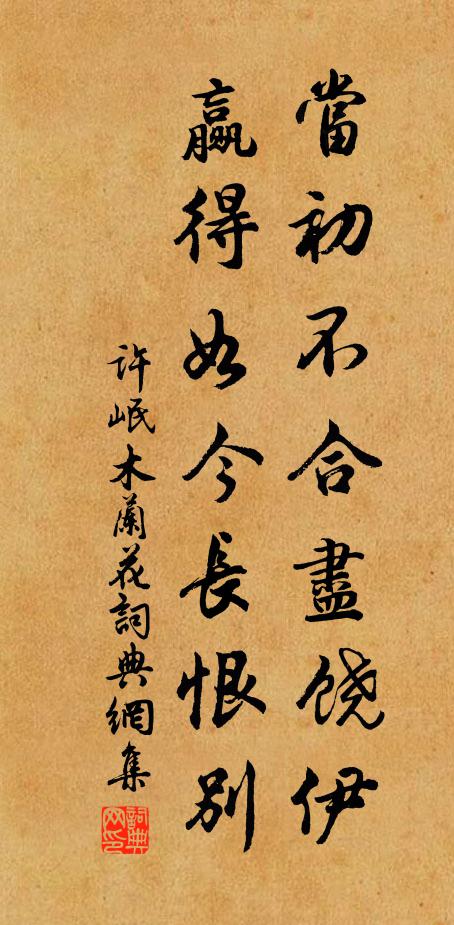 當初不合盡饒伊
贏得如今長恨別
許岷木蘭花詞典網集
詞典网印